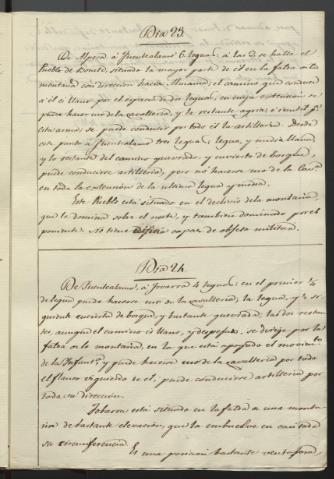 Dia 23.
De Alpera á Fuentealamo 6 leguas; á las 2 se halla el
Pueblo de Bonete, situado la mayor parte de él en la falda de la
montaña con dirección hacia Almansa, el camino que conduce
á él es llano por el espacio de dos leguas, en cuya extension se
puede hacer uso de la cavalleria, y lo restante
se puede conducir por todo él la artilleria. Desde
este punto á Fuentealamo tres leguas, legua, y media llana
y lo restante del camino quevrado, y cuvierto de bosque,
puede conducirse artilleria, pero no hacerse uso de la Cava
en toda la extension de la ultima legua y media.
Este Pueblo está situado en el declivio de la montaña,
que le domina sobre el norte, y tambien dominado por el
poniente. No tiene edificio capaz de objeto militar.
Dia 24.
De Fuentealamo, á Jovarra 4 leguas: en el primer 1/4
de legua puede hacerse uso de la cavalleria, la legua, y 1/2 si
guiente cuvierta de bosque y bastante quevrada, las dos restan
tes, aunque el camino es llano, y despejado, se dirije por la
falda de la montaña, en la que está apoyado el movim.to
de la Infant.a y puede hacerse uso de la cavalleria por todo
el flanco izquierdo de él, puede conducirse artilleria por
toda su direccion.
Jobarra está situado en la falda de una monta
ña de bastante elevacion, que la embuelve en casi toda
su circunferencia.
Es una posicion bastante ventajosa,